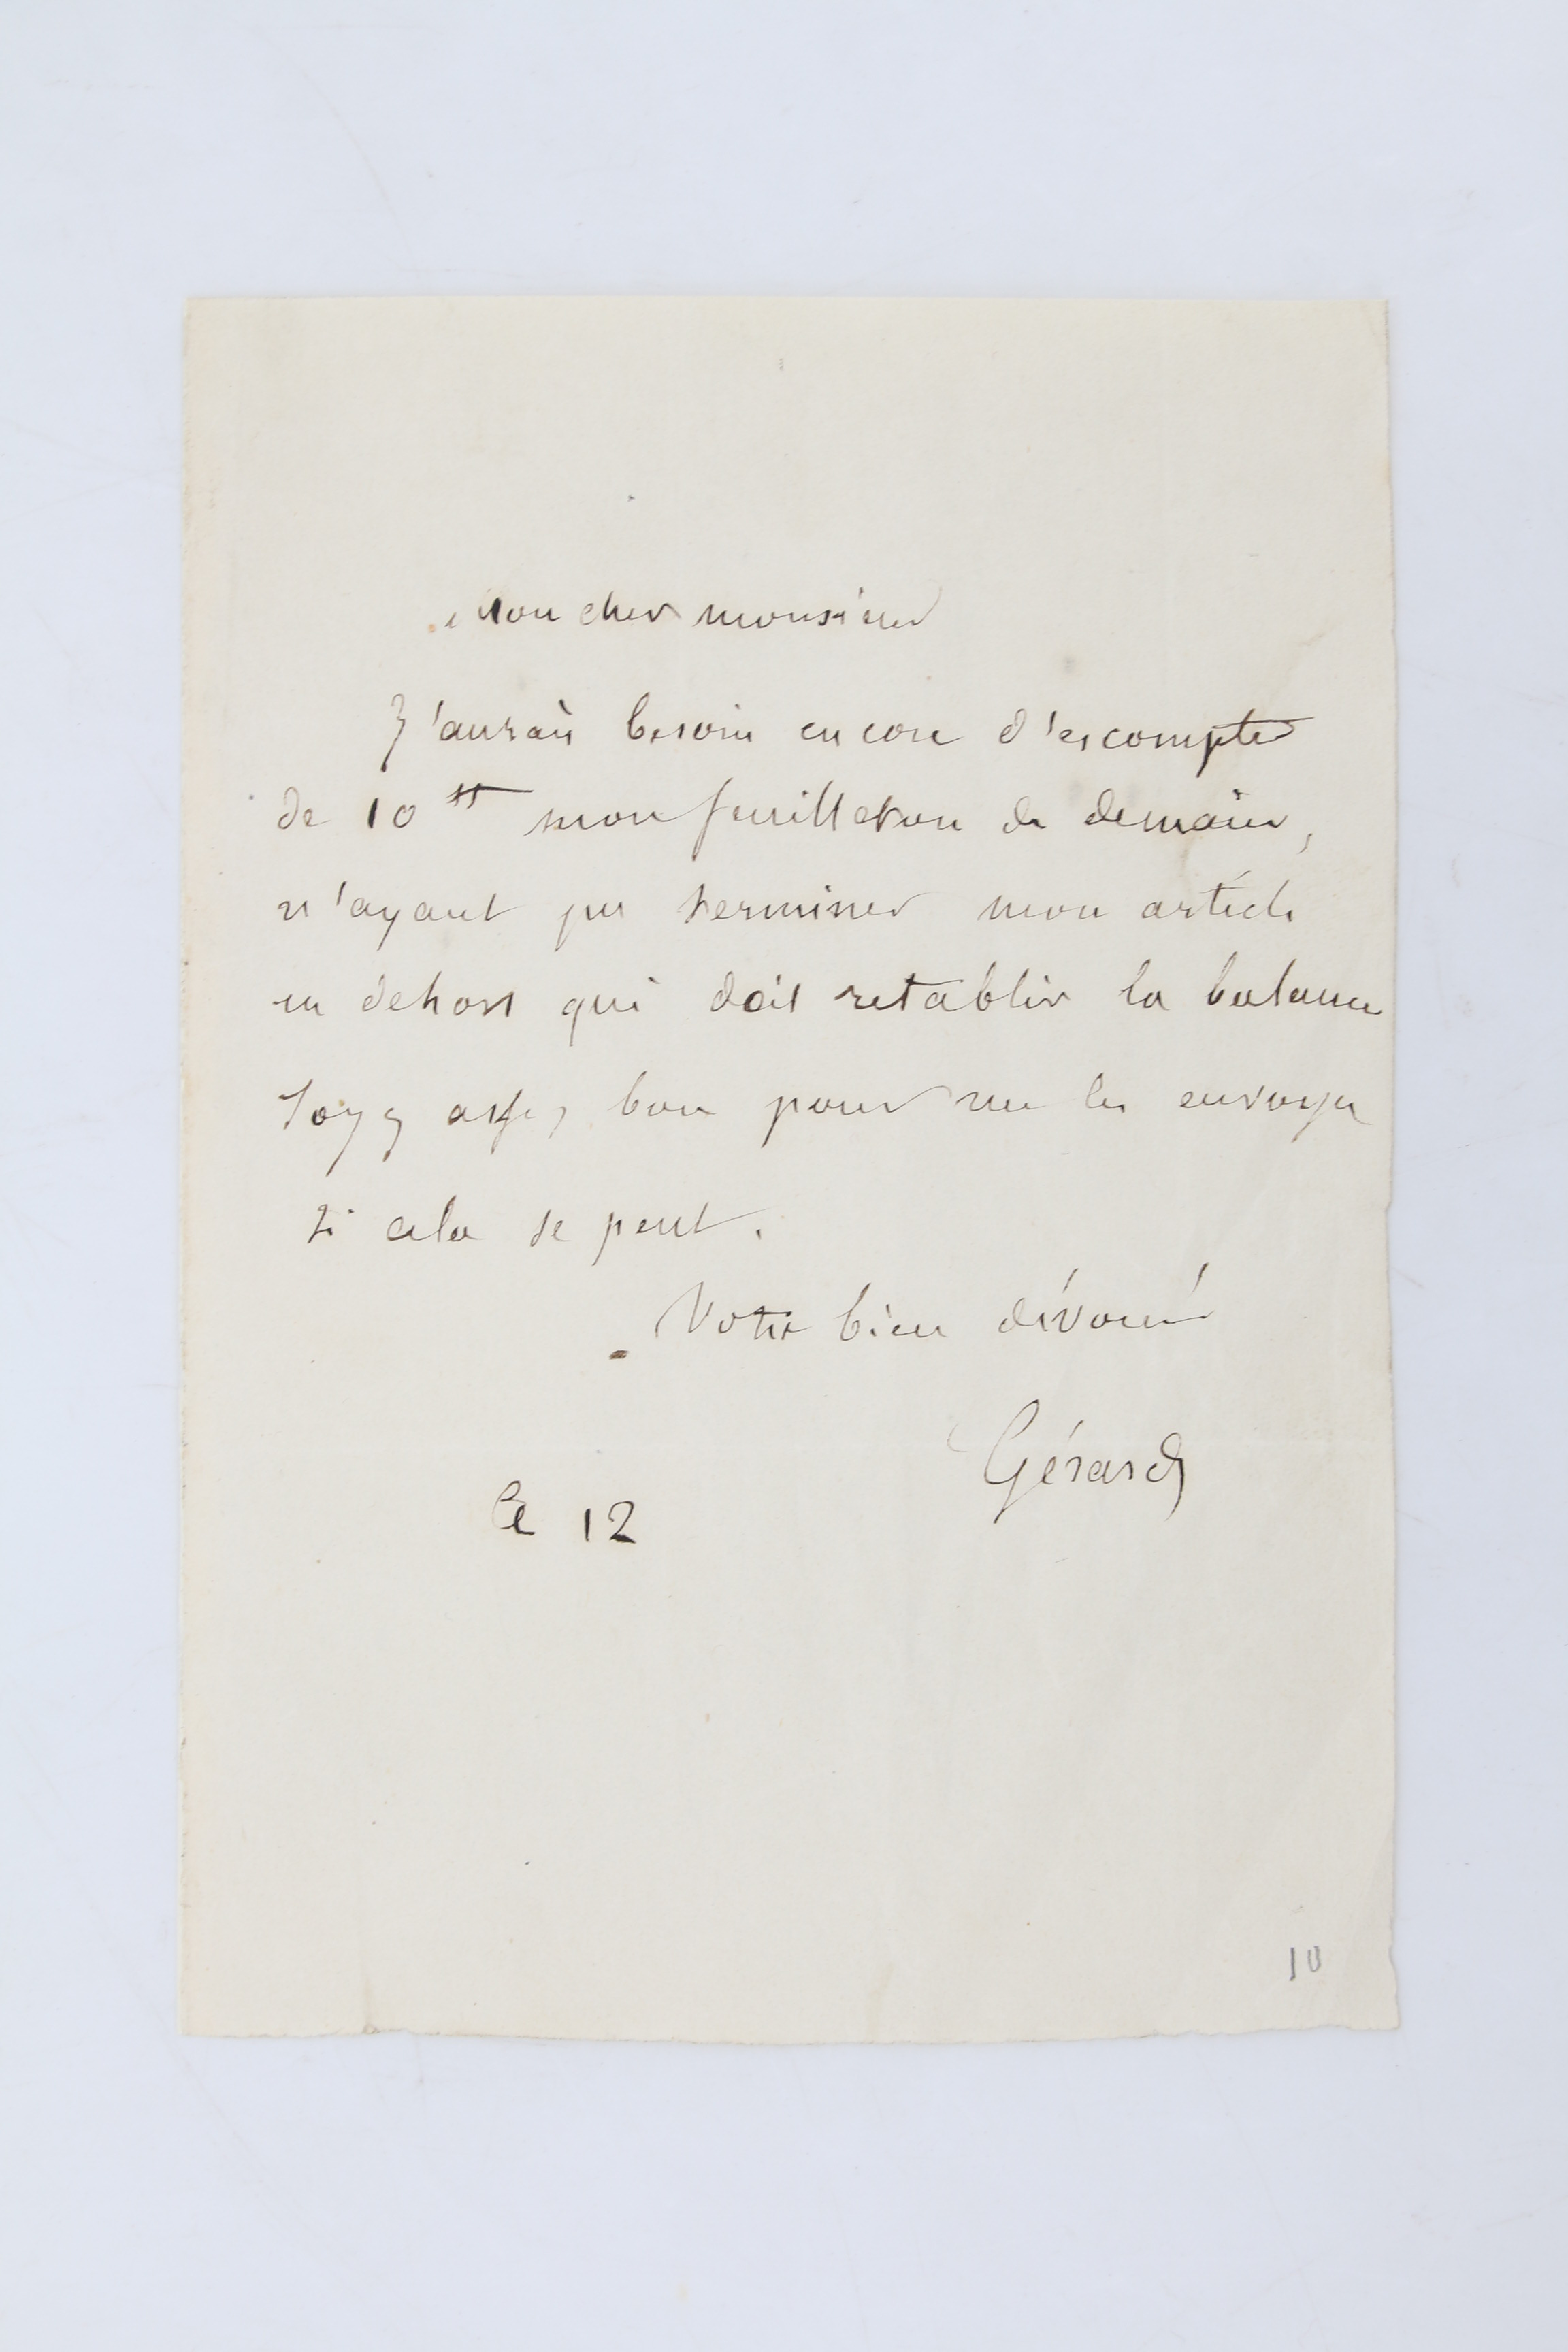 Mon cher monsieur
J'aurais besoin encore d'escompter
de 10 ₶ mon feuilleton de demain,
n'ayant pu terminer mon article
en dehors qui doit retablir la balance
Soyez assez bon pour me les envoyer
si cela se peut.
Votre bien dévoué
Gérard
le 12
10